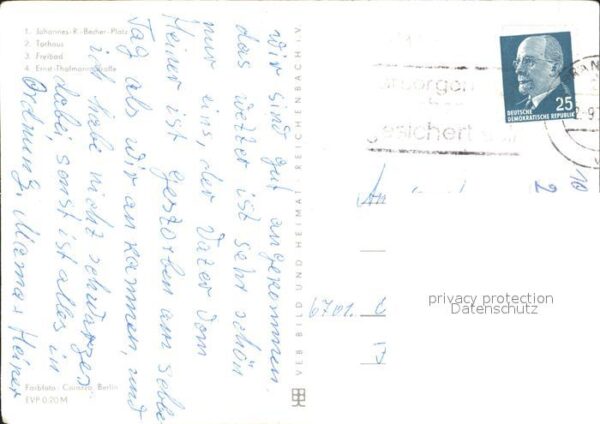 1. Johannes-R.-Becher-Platz
2. Torhaus
3. Freibad
4. Ernst-Thälmann-Straße
wir sind gut angekommen.
das wetter ist sehr schön
nur eins, der Vater vom
Heiner ist gestorben am selbe
Tag als wir an kammen, und
ich habe nicht schwarzes
dabei, sonst ist alles in
Ordnung. Mama + Heiner
Farbfoto: Coirazza, Berlin
EVP 0,20 M
VEB BILD UND HEIMAT REICHENBACH I. V.
gesichert
25
DEUTSCHE
DEMOKRATISCHE REPUBLIK
10
2
6701
privacy protection
Datenschutz